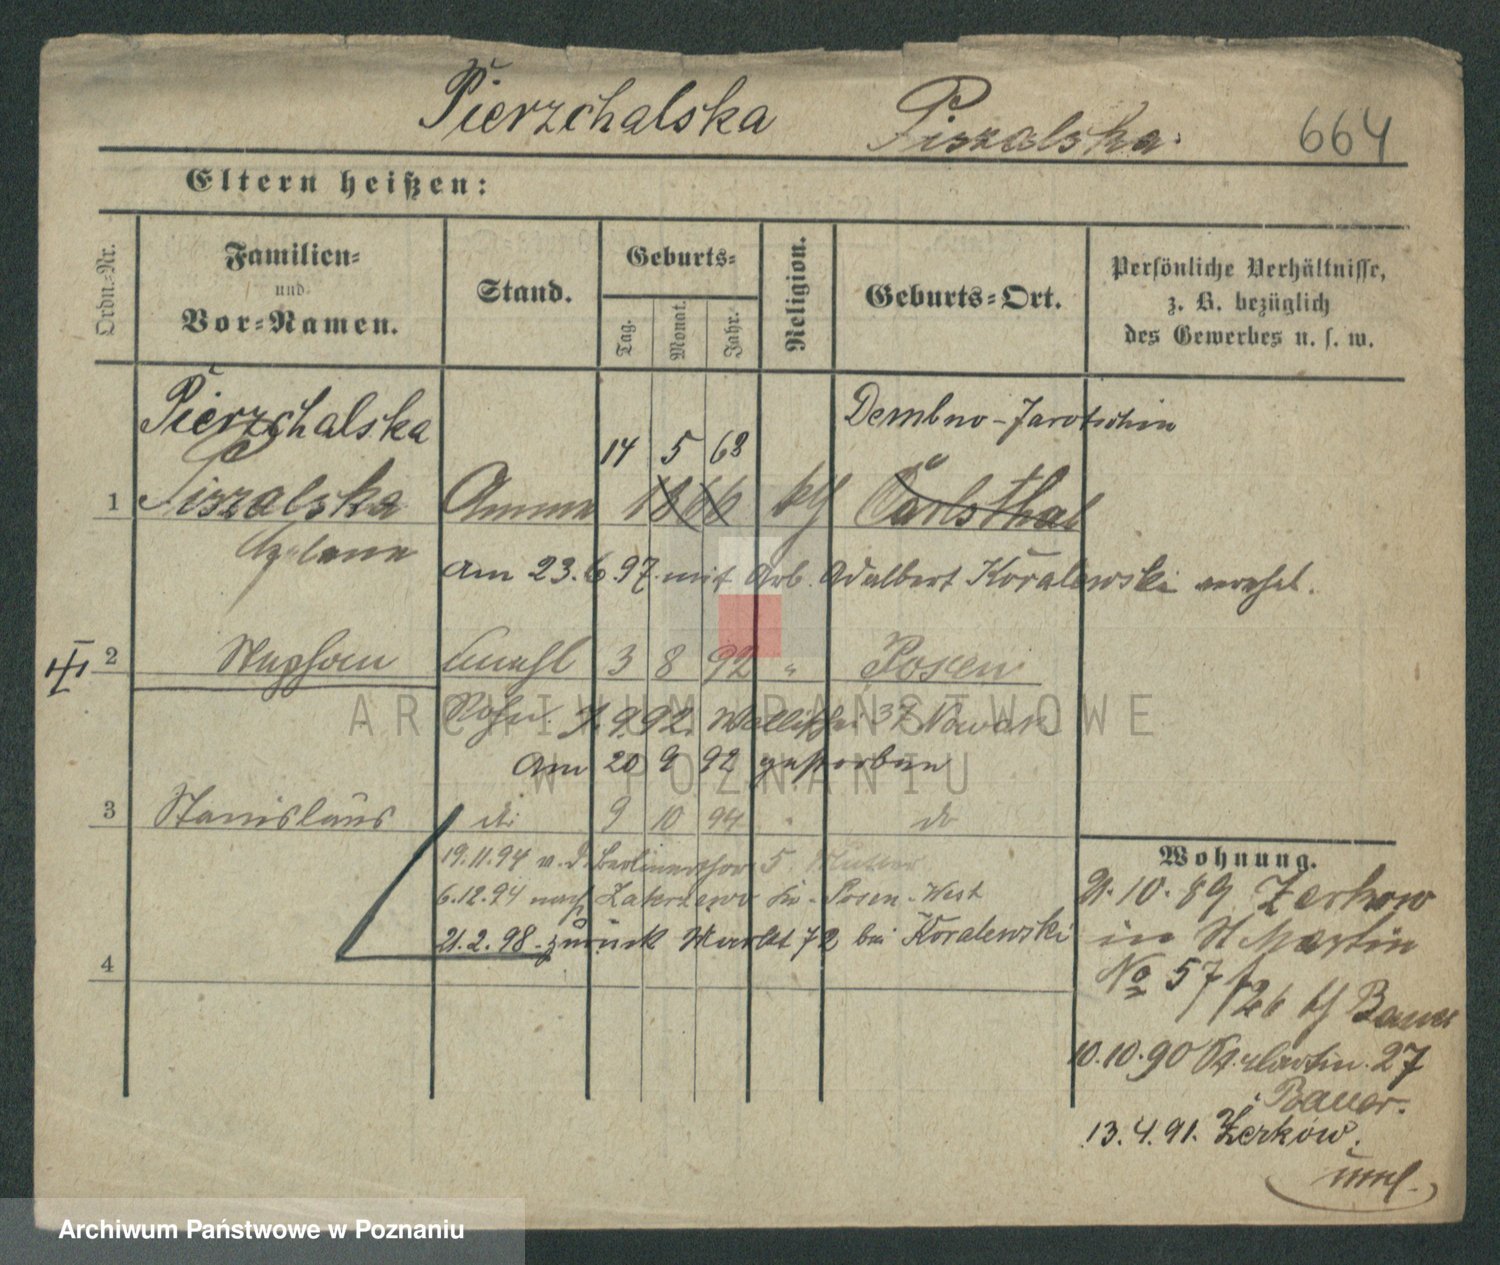 Pierzchalska Piszalska. 664
Eltern heißen:
Ordn.-Nr.
Familien-
und
Vor-Namen.
Stand.
Geburts-
Tag.
Monat.
Jahr.
Religion.
Geburts-Ort.
Persönliche Verhältnisse,
z. B. bezüglich
des Gewerbes u. s. w.
Pierzchalska
Dembno-Jarotschin
14 5 68
1 Piszalska Amme 1866 kth Carlsthal
am 23.6.97 mit Arb. Adalbert Koralewski verehel.
2 Stephan unehl 3 8 92 " Posen
7.9.92. Wallischei 37 Nowak
Am 20 9 92 gestorben
3 Stanislaus do 9 10 94 " do
19.11.94 v. d. Berlinerthor 5. Mutter
6.12.94 nach Zakrzewo Kr. Posen-West
21.2.98 zurück Markt 72 bei Koralewski
4
Wohnung.
21.10.89 Zerkow
in St Martin
No 57/26 bei Bauer
10.10.90 St. Martin. 27
Bauer.
13.4.91. Zerków.
ARCHIWUM PAŃSTWOWE
W POZNANIU
Archiwum Państwowe w Poznaniu